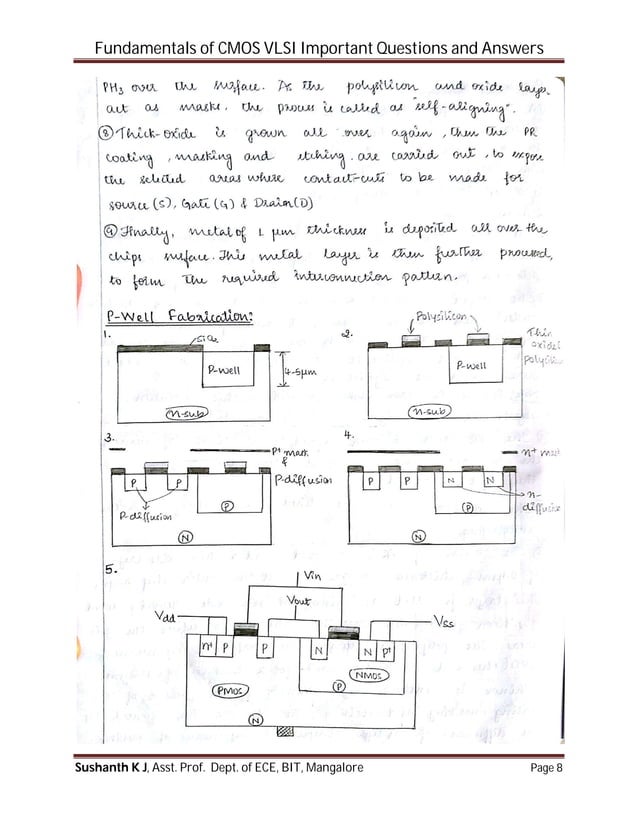 Fundamentals of CMOS VLSI Important Questions and Answers
PH₃ over the surface. As the polysilicon and oxide layer
act as masks, the process is called as "self-aligning".
⑧ Thick-oxide is grown all over again, then the PR
coating, masking and etching. are carried out, to expose
the selected areas where contact-cuts to be made for
source (S), Gate (G) & Drain (D)
⑨ Finally, metal of 1 μm thickness is deposited all over the
chips surface. This metal layer is then further processed,
to form the required interconnection pattern.
P-Well Fabrication:
1.
P-well
4-5μm
n-sub
2.
Polysilicon
Thin
oxide&
P-well
n-sub
3.
P+ mask
&
P-diffusion
P P
P
P-diffusion
N
4.
n+ mask
P P N N
n-
P
N
5.
Vin
Vout
Vdd
Vss
n+ P P N N P+
PMOS
NMOS
P
N
Sushanth K J, Asst. Prof. Dept. of ECE, BIT, Mangalore Page 8